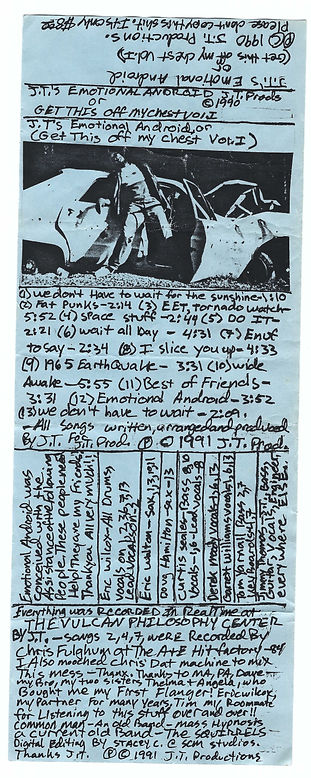 Please don't copy this shit. It's only
℗© 1990 J.T. Productions.
(Get this off my chest Vol.I)
or
J.T.'s Emotional Android
J.T.'S EMOTIONAL ANDROID J.T. Prods
or ©1990
GET THIS off my chest Vol.I
J.T's Emotional Android, or
(Get This off my Chest Vol.I)
(1) we don't Have to wait for the sunshine-1:10
(2) Fat Punks-2:14 (3) EET, tornado watch-
5:52 (4) Space Stuff-2:49 (5) DO IT-
2:21 (6) wait all Day - 4:31 (7) Enuf
to say-2:34 (8) I slice you up-4:33
(9) 1965 EarthQuake- 3:31 (10) wide
Awake-5:55 (11) Best of Friends-
3:31 (12) Emotional Android-3:52
(13) we don't have to wait-2:09.
All songs written, arranged and produced
By J.T. For J.T. Prod. ℗ © 1991 J.T. Prod.
Emotional Android was
conceived with the
Assistance of the following
People. These people need
Help. They are my Friends.
Thank you All very much!
Eric wilcox-All Drums,
Eric walton-sax,
Doug Hamilton-sax-
Curtis
Derek
Garrett Williams
Tom
Jimmy Thomas
Guitar, Vocals, Engineer,
everywhere Else.
Everything was RECORDED In RealTime at
THE VULCAN PHILOSOPHY CENTER
By J.T. - songs 2,4,7, were Recorded By
Chris Fulghum at The A+E Hit factory-
I Also mooched Chris' Dat machine to mix
This mess - Thanx. Thanks to MA, PA, Dave-
my Bro, my two Sisters Thelma + Angela, who
Bought me my First Flanger! Eric wilcox,
my Partner For many years, Tim my Roommate
for Listening to this stuff over and over!!
Common man - An old Band - Mass Hypnosis
a current old Band-The SQUIRRELS-
Digital Editing By Stacey C. @ SCM studios.
Thanks J.T. ℗© 1991 J.T. Productions